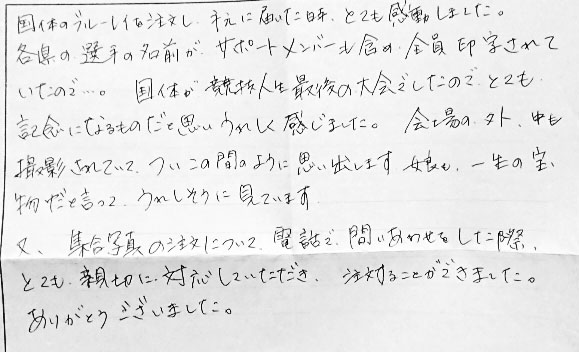 国体のブルーレイを注文し、手元に届いた時、とても感動しました。
各県の選手の名前が、サポートメンバーも含め、全員印字されて
いたので…。国体が競技人生最後の大会でしたので、とても
記念になるものだと思いうれしく感じました。会場の外、中も
撮影されていて、ついこの間のように思い出します 娘も、一生の宝
物だと言って、うれしそうに見ています
又、集合写真の注文について、電話で、問いあわせをした際、
とても、親切に対応していただき、注文することができました。
ありがとうございました。